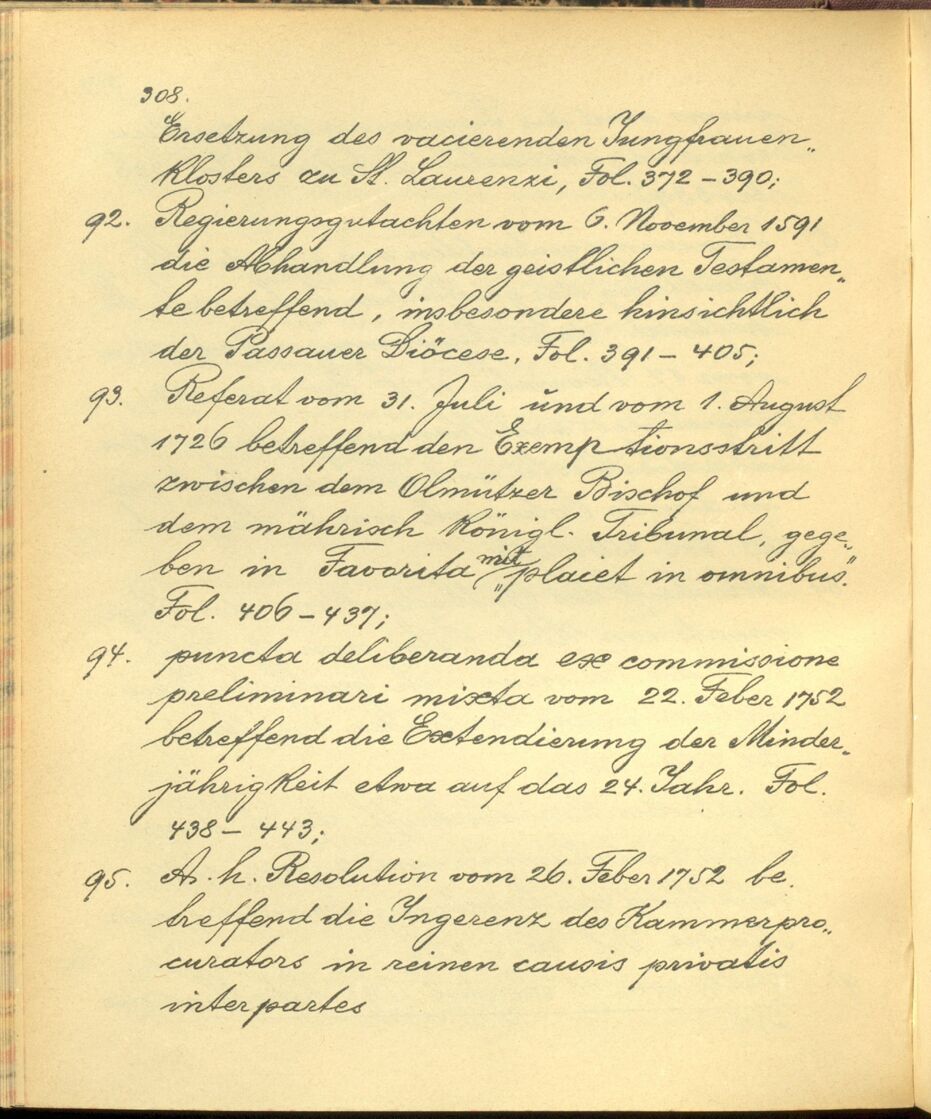 308.
Ersetzung des vacierenden Jungfrauen„
klosters zu St. Laurenzi, Fol. 372 – 390;
92. Regierungsgutachten vom 6. November 1591
die Abhandlung der geistlichen Testamen„
te betreffend, insbesondere hinsichtlich
der Passauer Diöcese, Fol. 391 – 405;
93. Referat vom 31. Juli und vom 1. August
1726 betreffend den Exemptionsstritt
zwischen dem Olmützer Bischof und
dem mährisch königl. Tribunal, gege„
ben in Favorita mit „placet in omnibus".
Fol. 406 – 437;
94. puncta deliberanda ex commissione
preliminari mixta vom 22. Feber 1752
betreffend die Extendierung der Minder„
jährigkeit etwa auf das 24. Jahr. Fol.
438 – 443;
95. A. h. Resolution vom 26. Feber 1752 be„
treffend die Ingerenz des Kammerpro„
curators in reinen causis privatis
inter partes